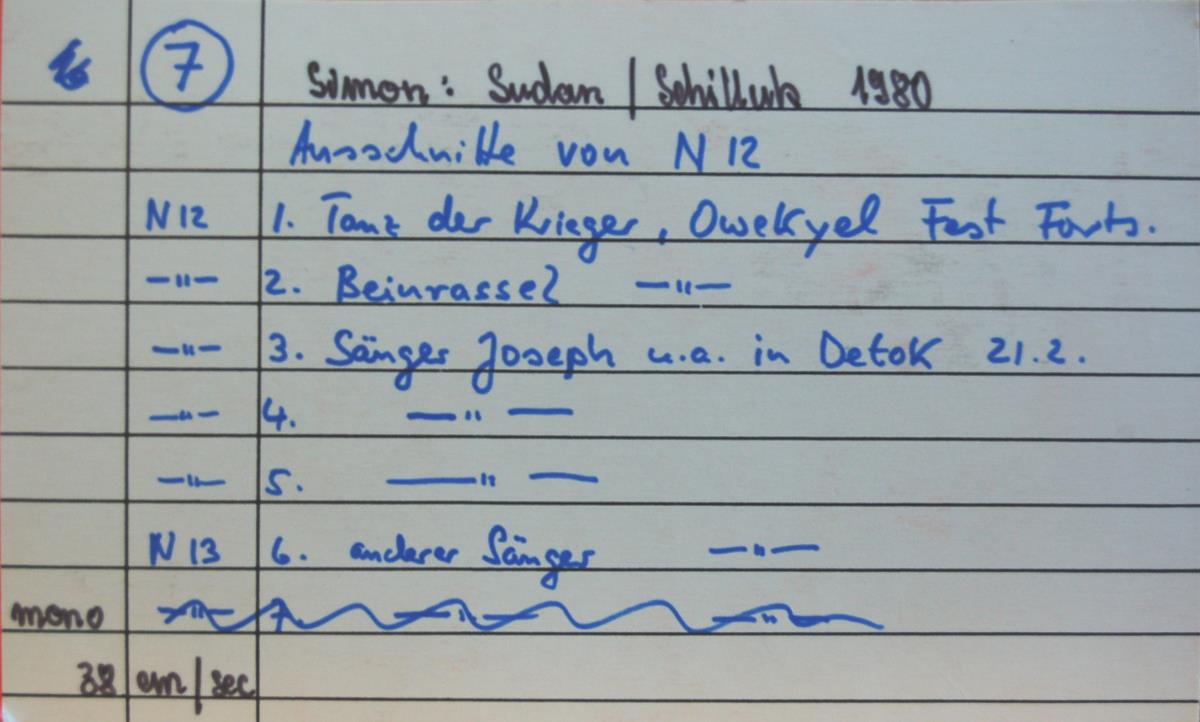 7 Simon: Sudan / Schilluk 1980
Ausschnitte von N 12
N 12 1. Tanz der Krieger, Owekyel Fest Forts.
—"— 2. Beinrassel —"—
—"— 3. Sänger Joseph u.a. in Detok 21.2.
—"— 4. —"—
—"— 5. —"—
N 13 6. anderer Sänger —"—
mono —"— 7. —"— —"—
38 cm/sec